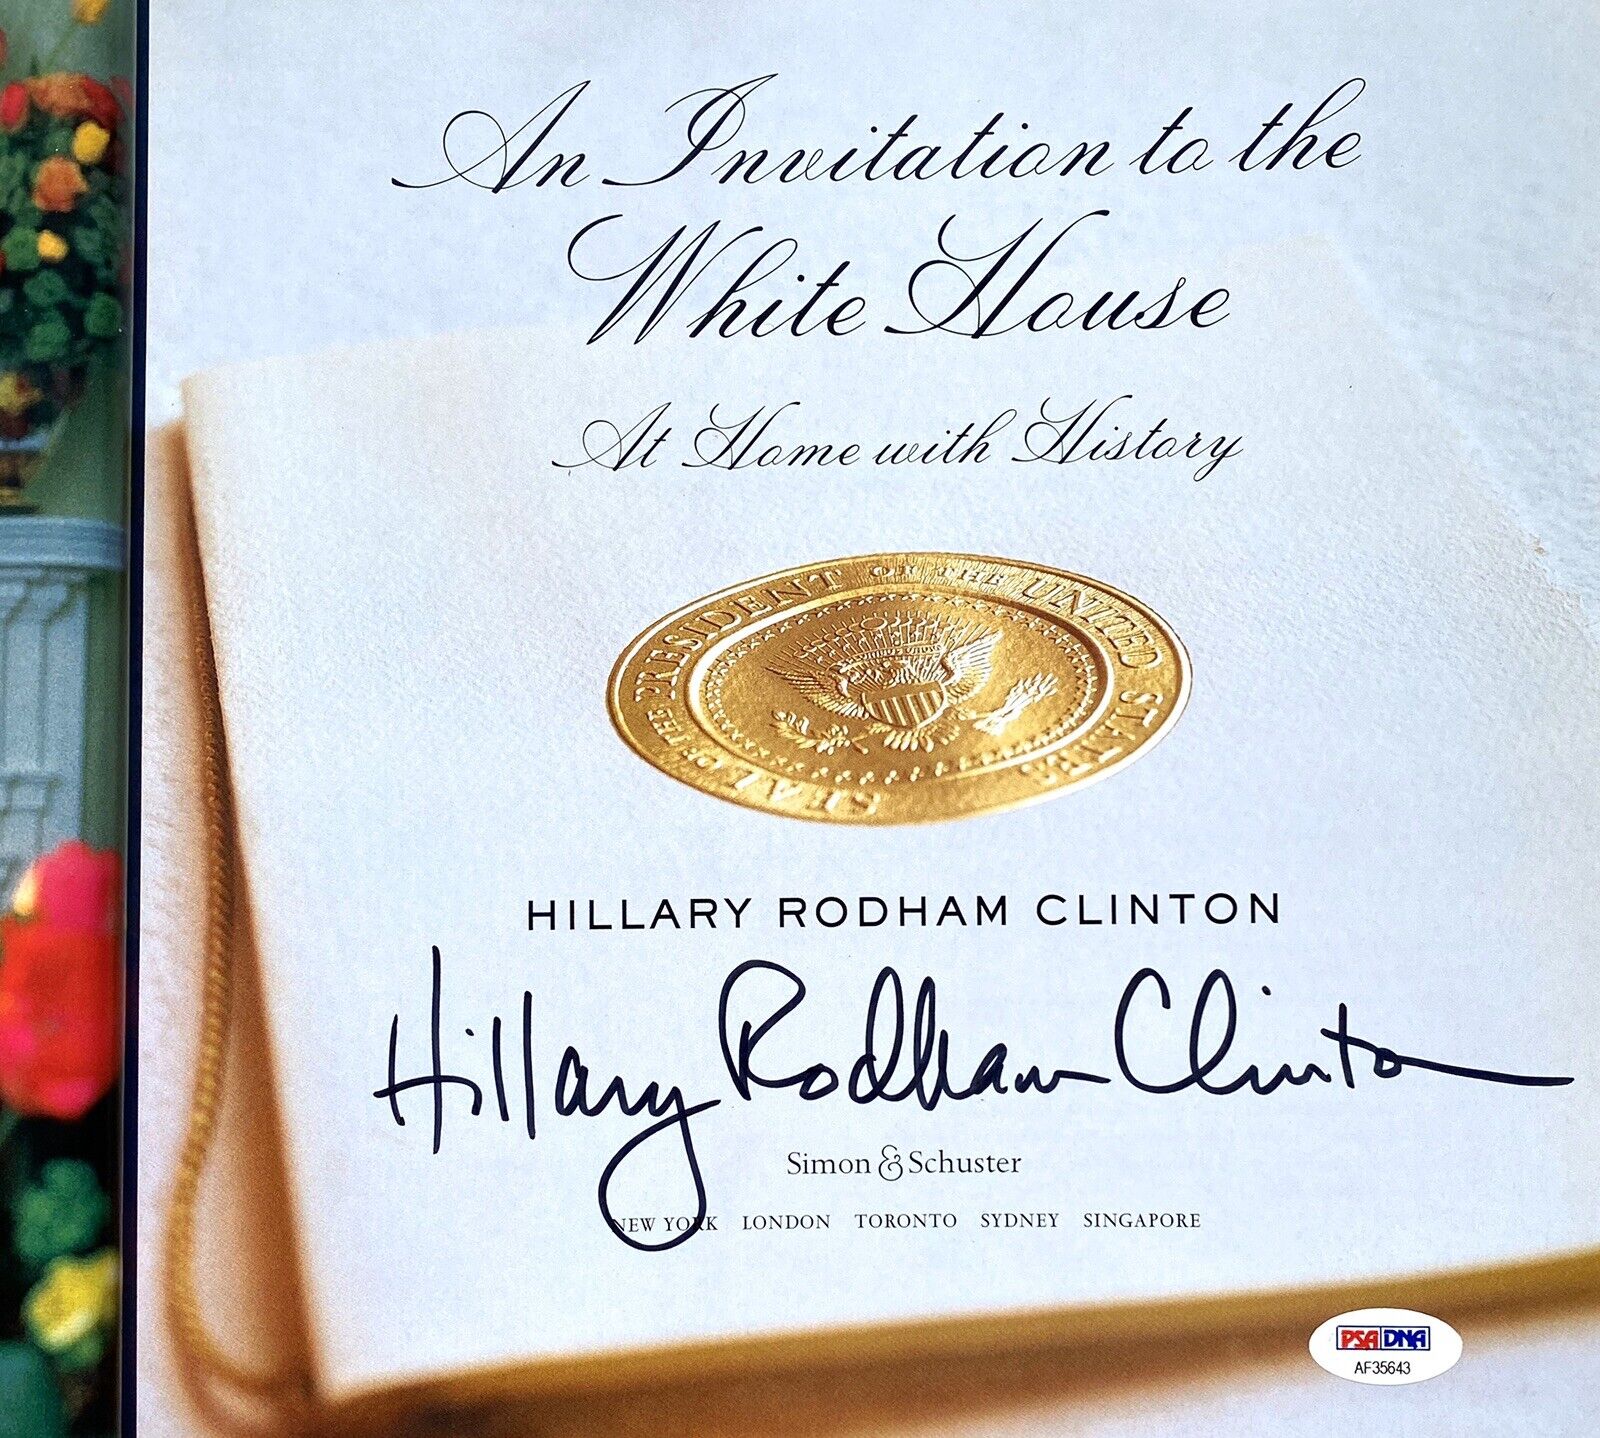 An Invitation to the
White House
At Home with History
SEAL OF THE PRESIDENT OF THE UNITED STATES
HILLARY RODHAM CLINTON
Hillary Rodham Clinton
Simon & Schuster
NEW YORK LONDON TORONTO SYDNEY SINGAPORE
PSA DNA
AF35643